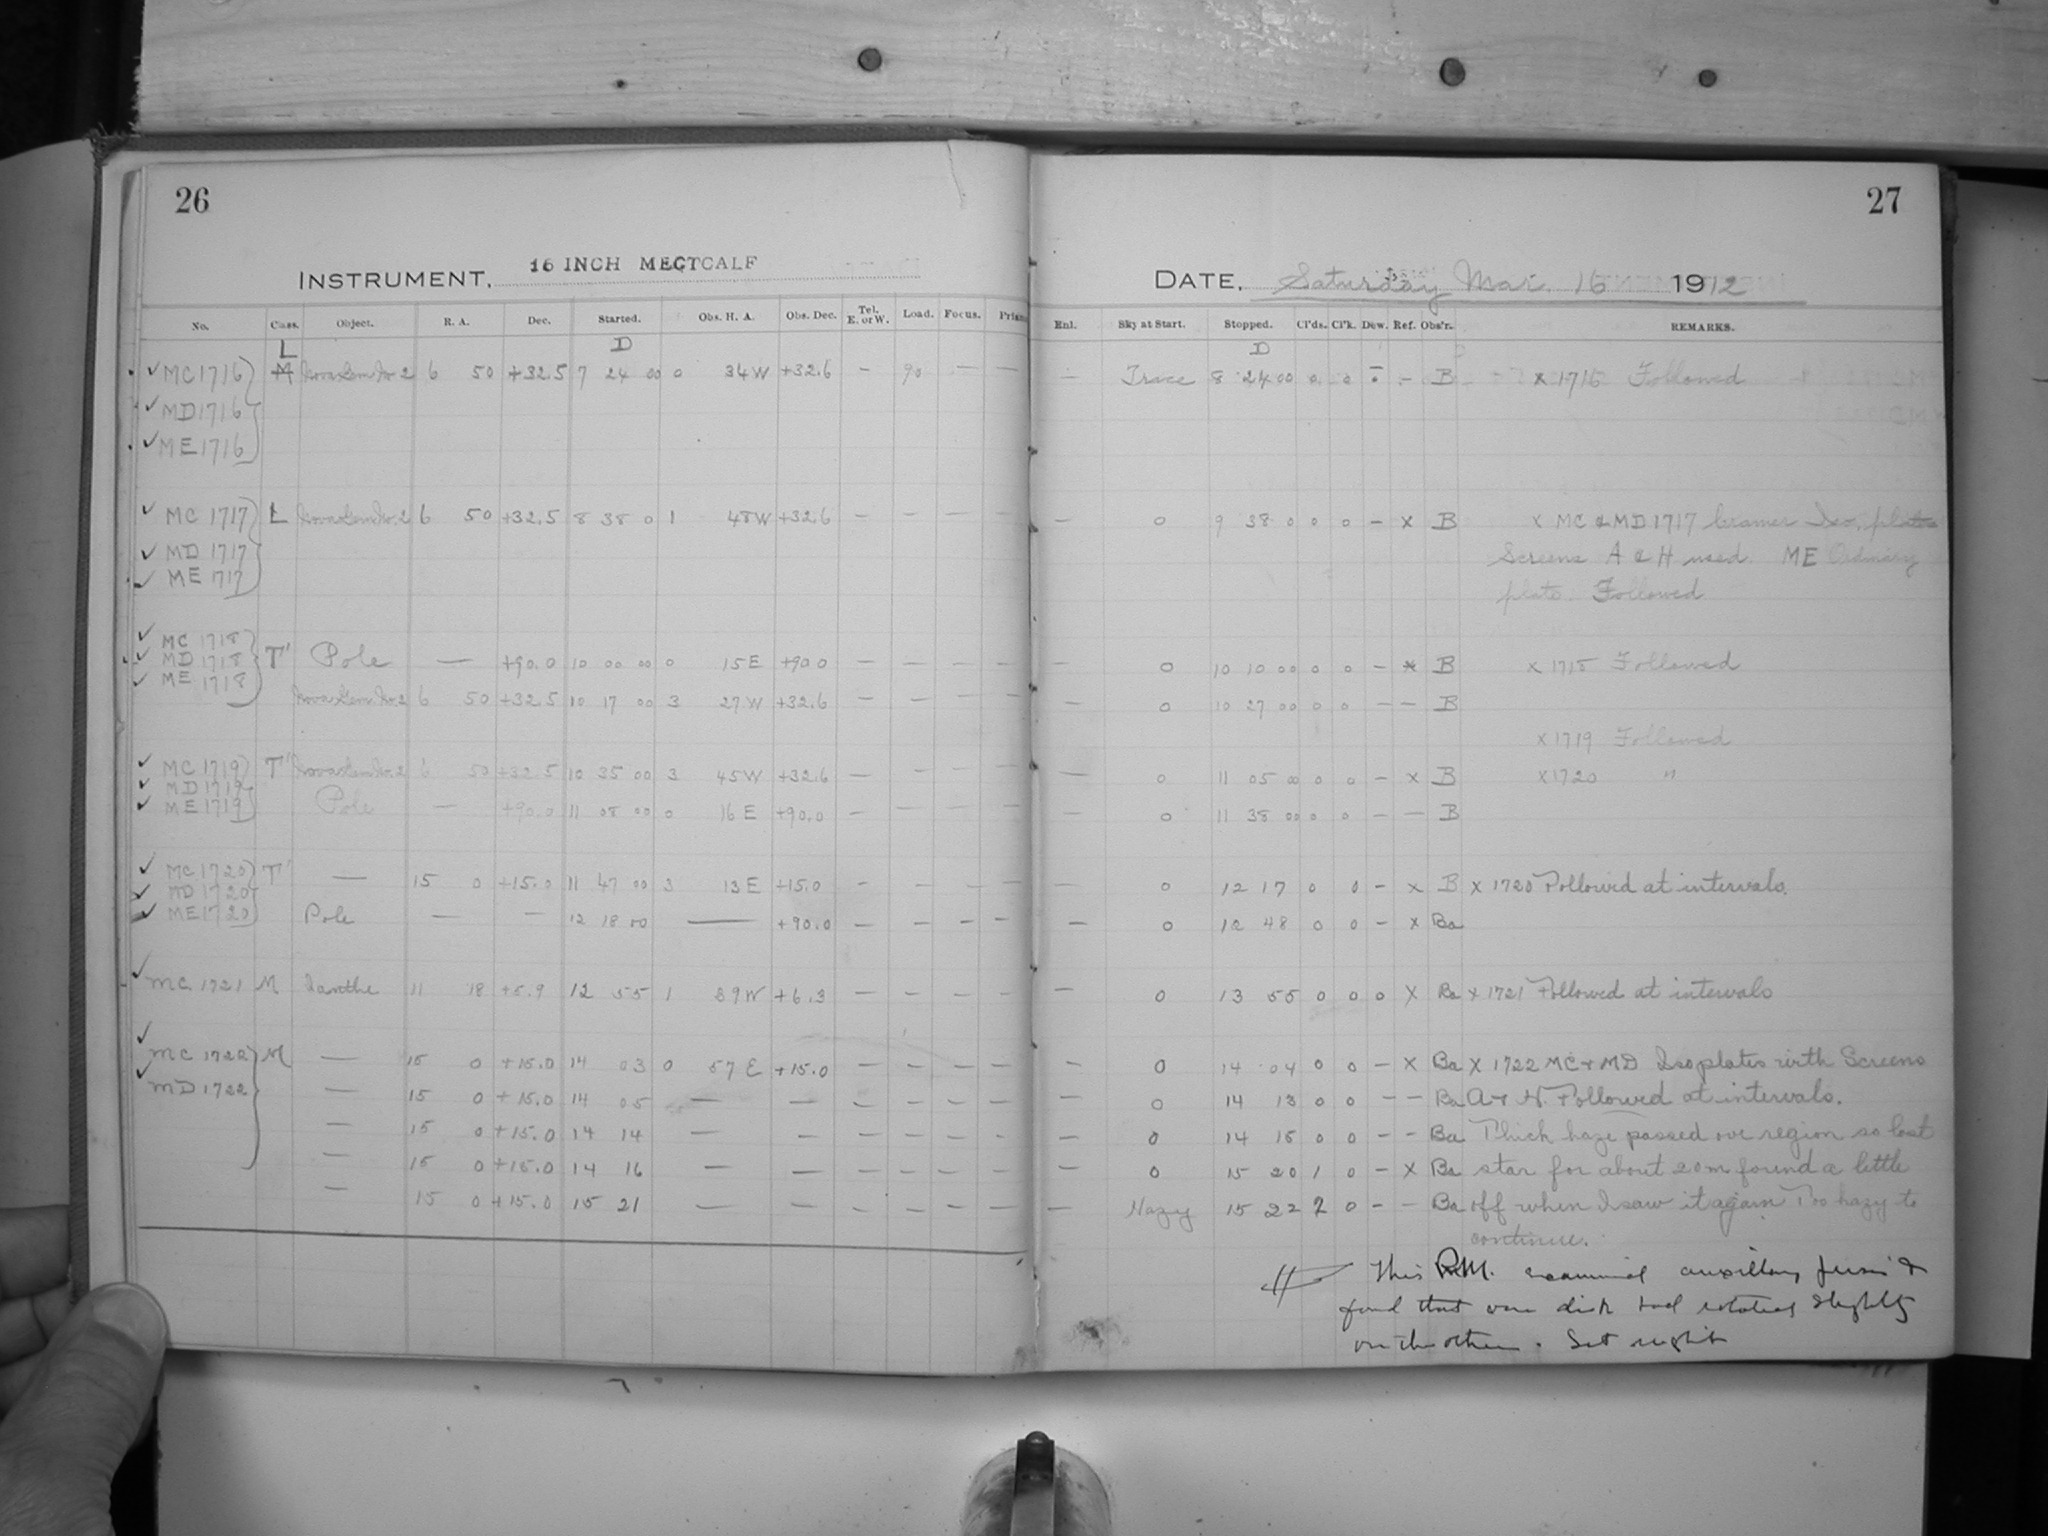 26
INSTRUMENT, 16 INCH METCALF
No. Class. Object. R. A. Dec. Started. Obs. H. A. Obs. Dec. Tel. E. or W. Load. Focus. Prism
L D
MC 1716 M Nova Gem No. 2 6 50 +32.5 7 24 00 0 34 W +32.6 — 90 — —
MD 1716
ME 1716
MC 1717 L Nova Gem No. 2 6 50 +32.5 8 38 0 1 48 W +32.6 — — — —
MD 1717
ME 1717
MC 1718
MD 1718 T' Pole — +90.0 10 00 00 0 15 E +90.0 — — — —
ME 1718
Nova Gem No. 2 6 50 +32.5 10 17 00 3 27 W +32.6 — — — —
MC 1719 T' Nova Gem No. 2 6 50 +32.5 10 35 00 3 45 W +32.6 — — — —
MD 1719
ME 1719 Pole — +90.0 11 08 00 0 16 E +90.0 — — — —
MC 1720 T' — 15 0 +15.0 11 47 00 3 13 E +15.0 — — — —
MD 1720
ME 1720 Pole — — 12 18 00 — +90.0 — — — —
MC 1721 M Ianthe 11 18 +5.9 12 55 1 39 W +6.3 — — — —
MC 1722 M — 15 0 +15.0 14 03 0 57 E +15.0 — — — —
MD 1722 — 15 0 +15.0 14 05 — — — — — —
— 15 0 +15.0 14 14 — — — — — —
— 15 0 +15.0 14 16 — — — — — —
— 15 0 +15.0 15 21 — — — — — —
27
DATE, Saturday Mar. 16 1912
Enl. Sky at Start. Stopped. Cl'ds. Cl'k. Dew. Ref. Obs'r. REMARKS.
D
— Trace 8 24 00 0 0 – B x 1716 Followed
— 0 9 38 0 0 0 – x B x MC & MD 1717 Cramer Iso. plates
Screens A & H used. ME Ordinary
plate. Followed
— 0 10 10 00 0 0 – x B x 1718 Followed
— 0 10 27 00 0 0 – – B
x 1719 Followed
— 0 11 05 00 0 0 – x B x 1720 "
— 0 11 38 00 0 0 – – B
— 0 12 17 0 0 – x B x 1720 Followed at intervals.
— 0 12 48 0 0 – x Ba
— 0 13 55 0 0 0 x Ba x 1721 Followed at intervals
— 0 14 04 0 0 – x Ba x 1722 MC + MD Iso plates with Screens
— 0 14 13 0 0 – – Ba A + H. Followed at intervals.
— 0 14 15 0 0 – – Ba Thick haze passed over region so lost
— 0 15 20 1 0 – x Ba star for about 20m found a little
— Hazy 15 22 2 0 – – Ba off when I saw it again Too hazy to
continue.
This P.M. examined auxillary &
found that one disk had rotated slightly
on the other. Set right